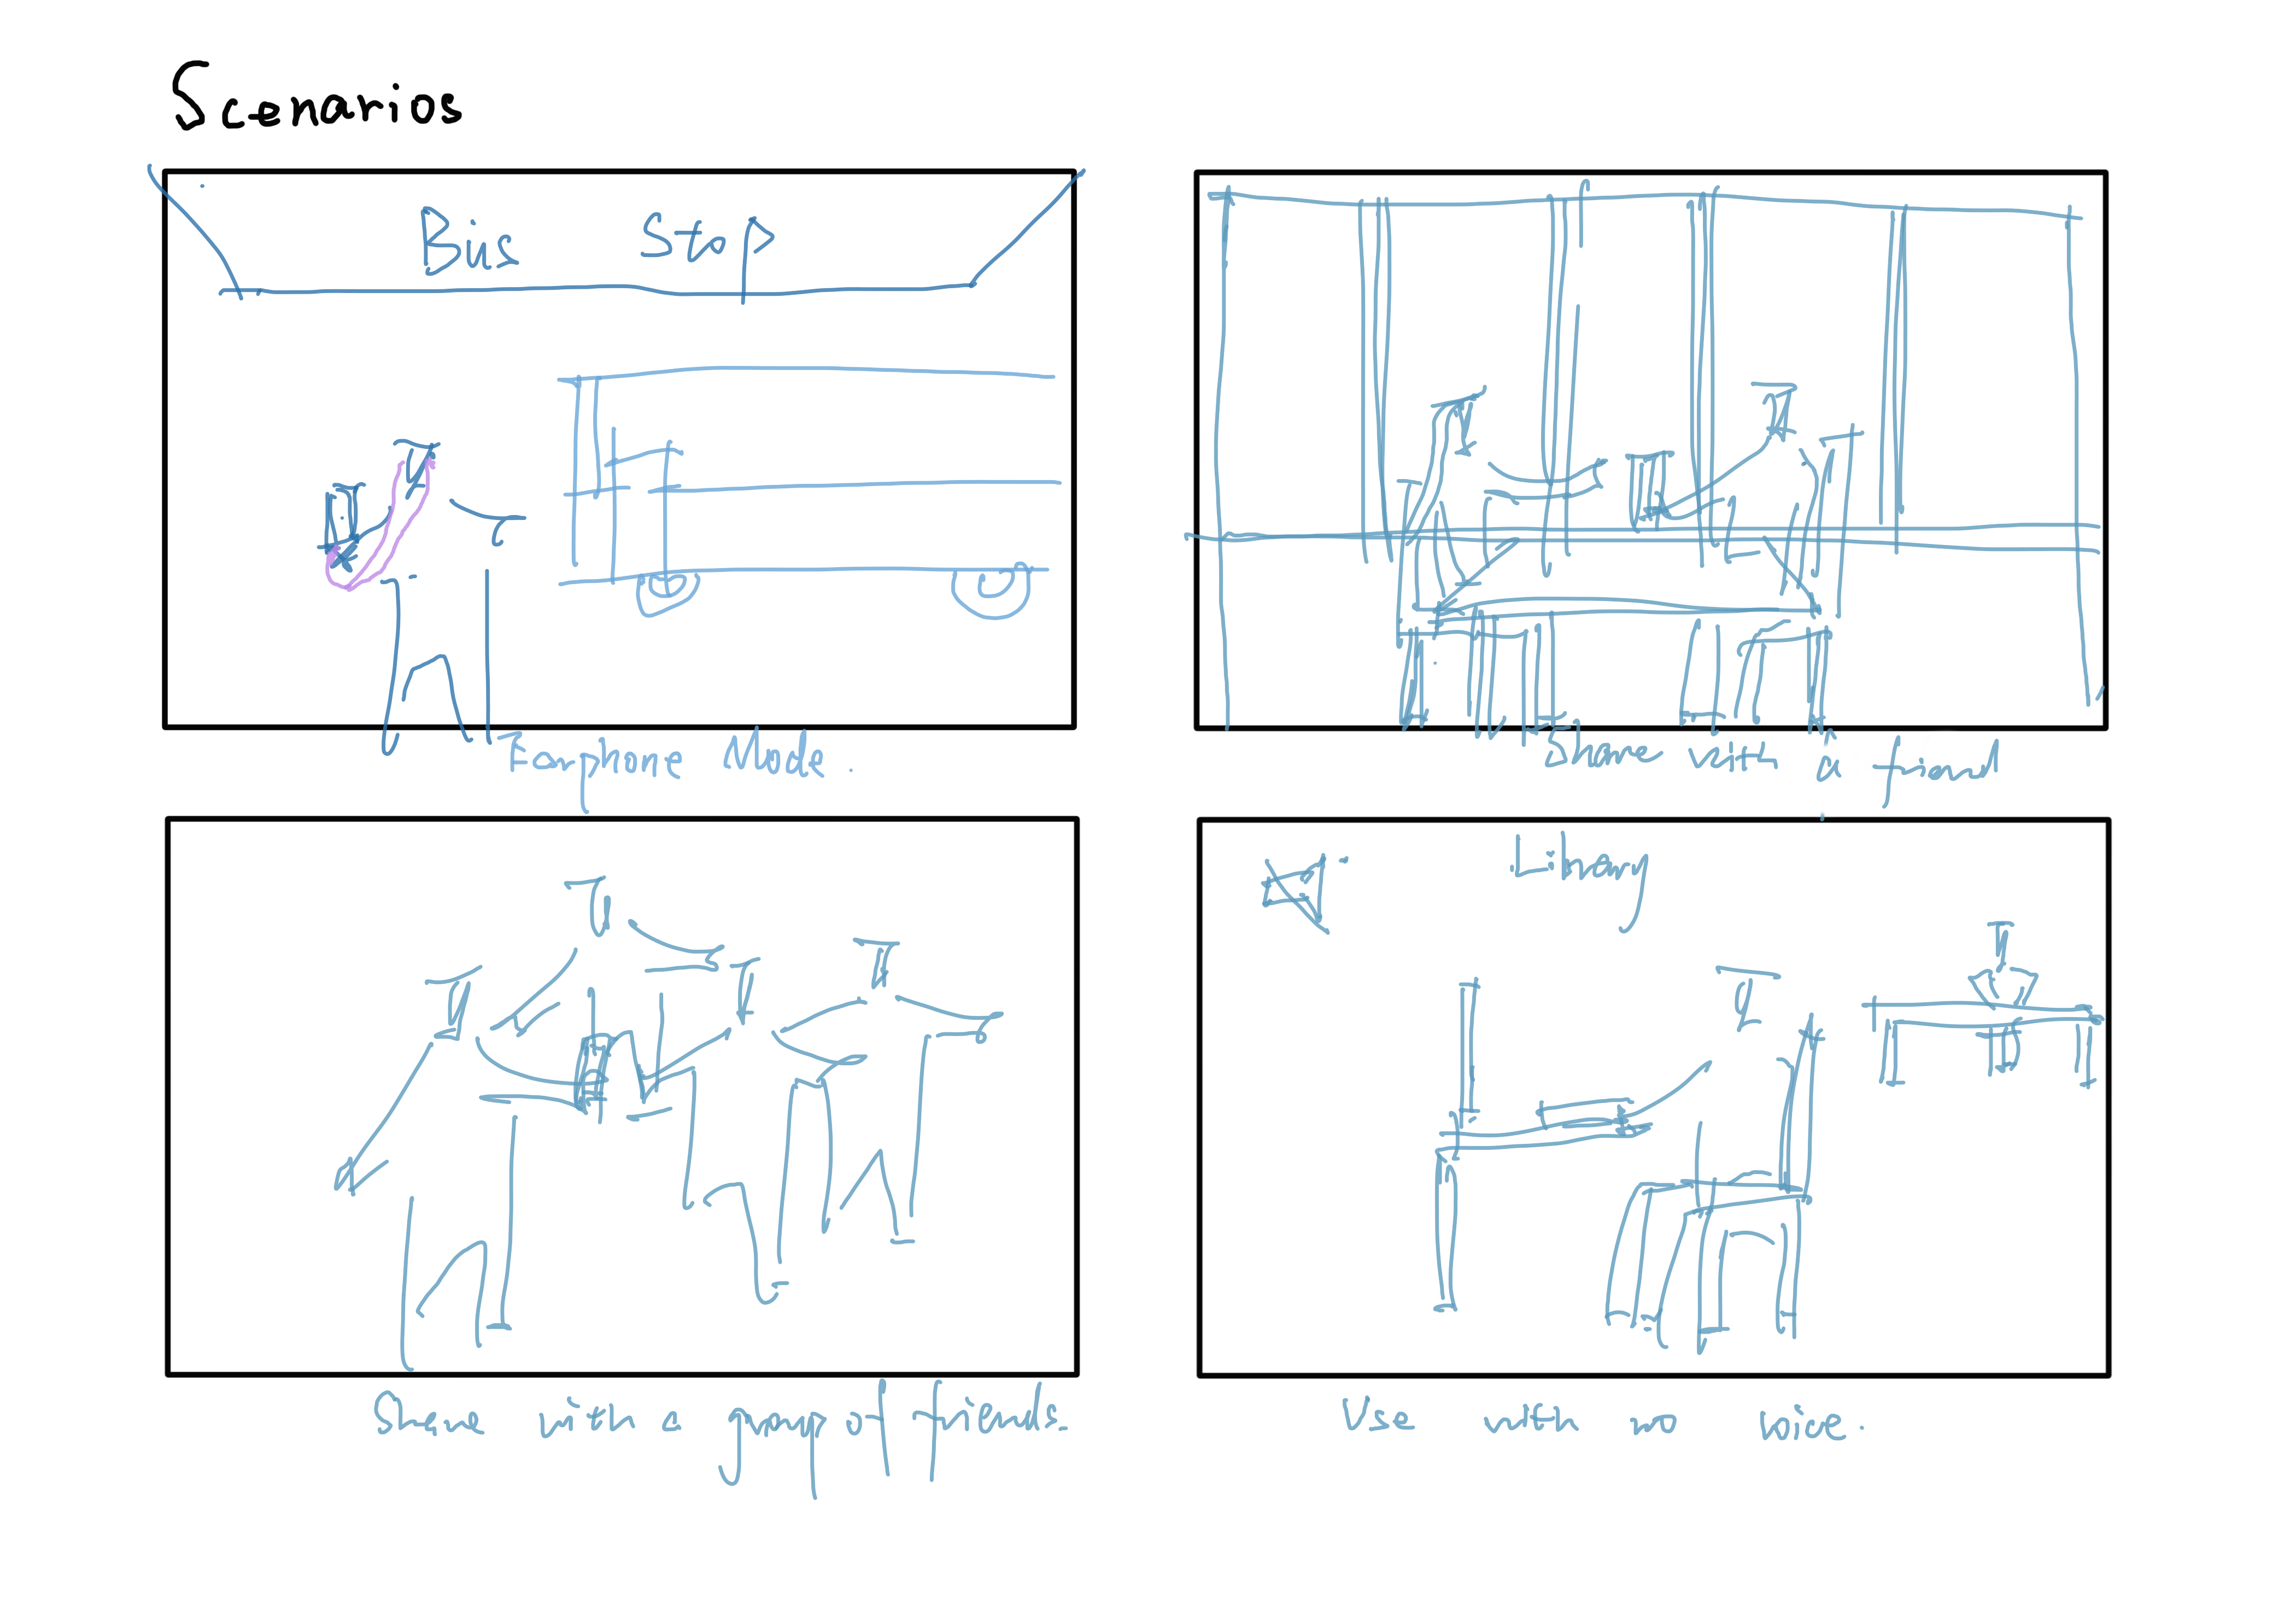 Scenarios
Bus Stop
Earphone Mode.
Share with a friend
Library
Share with a group of friends.
Use with no noise.